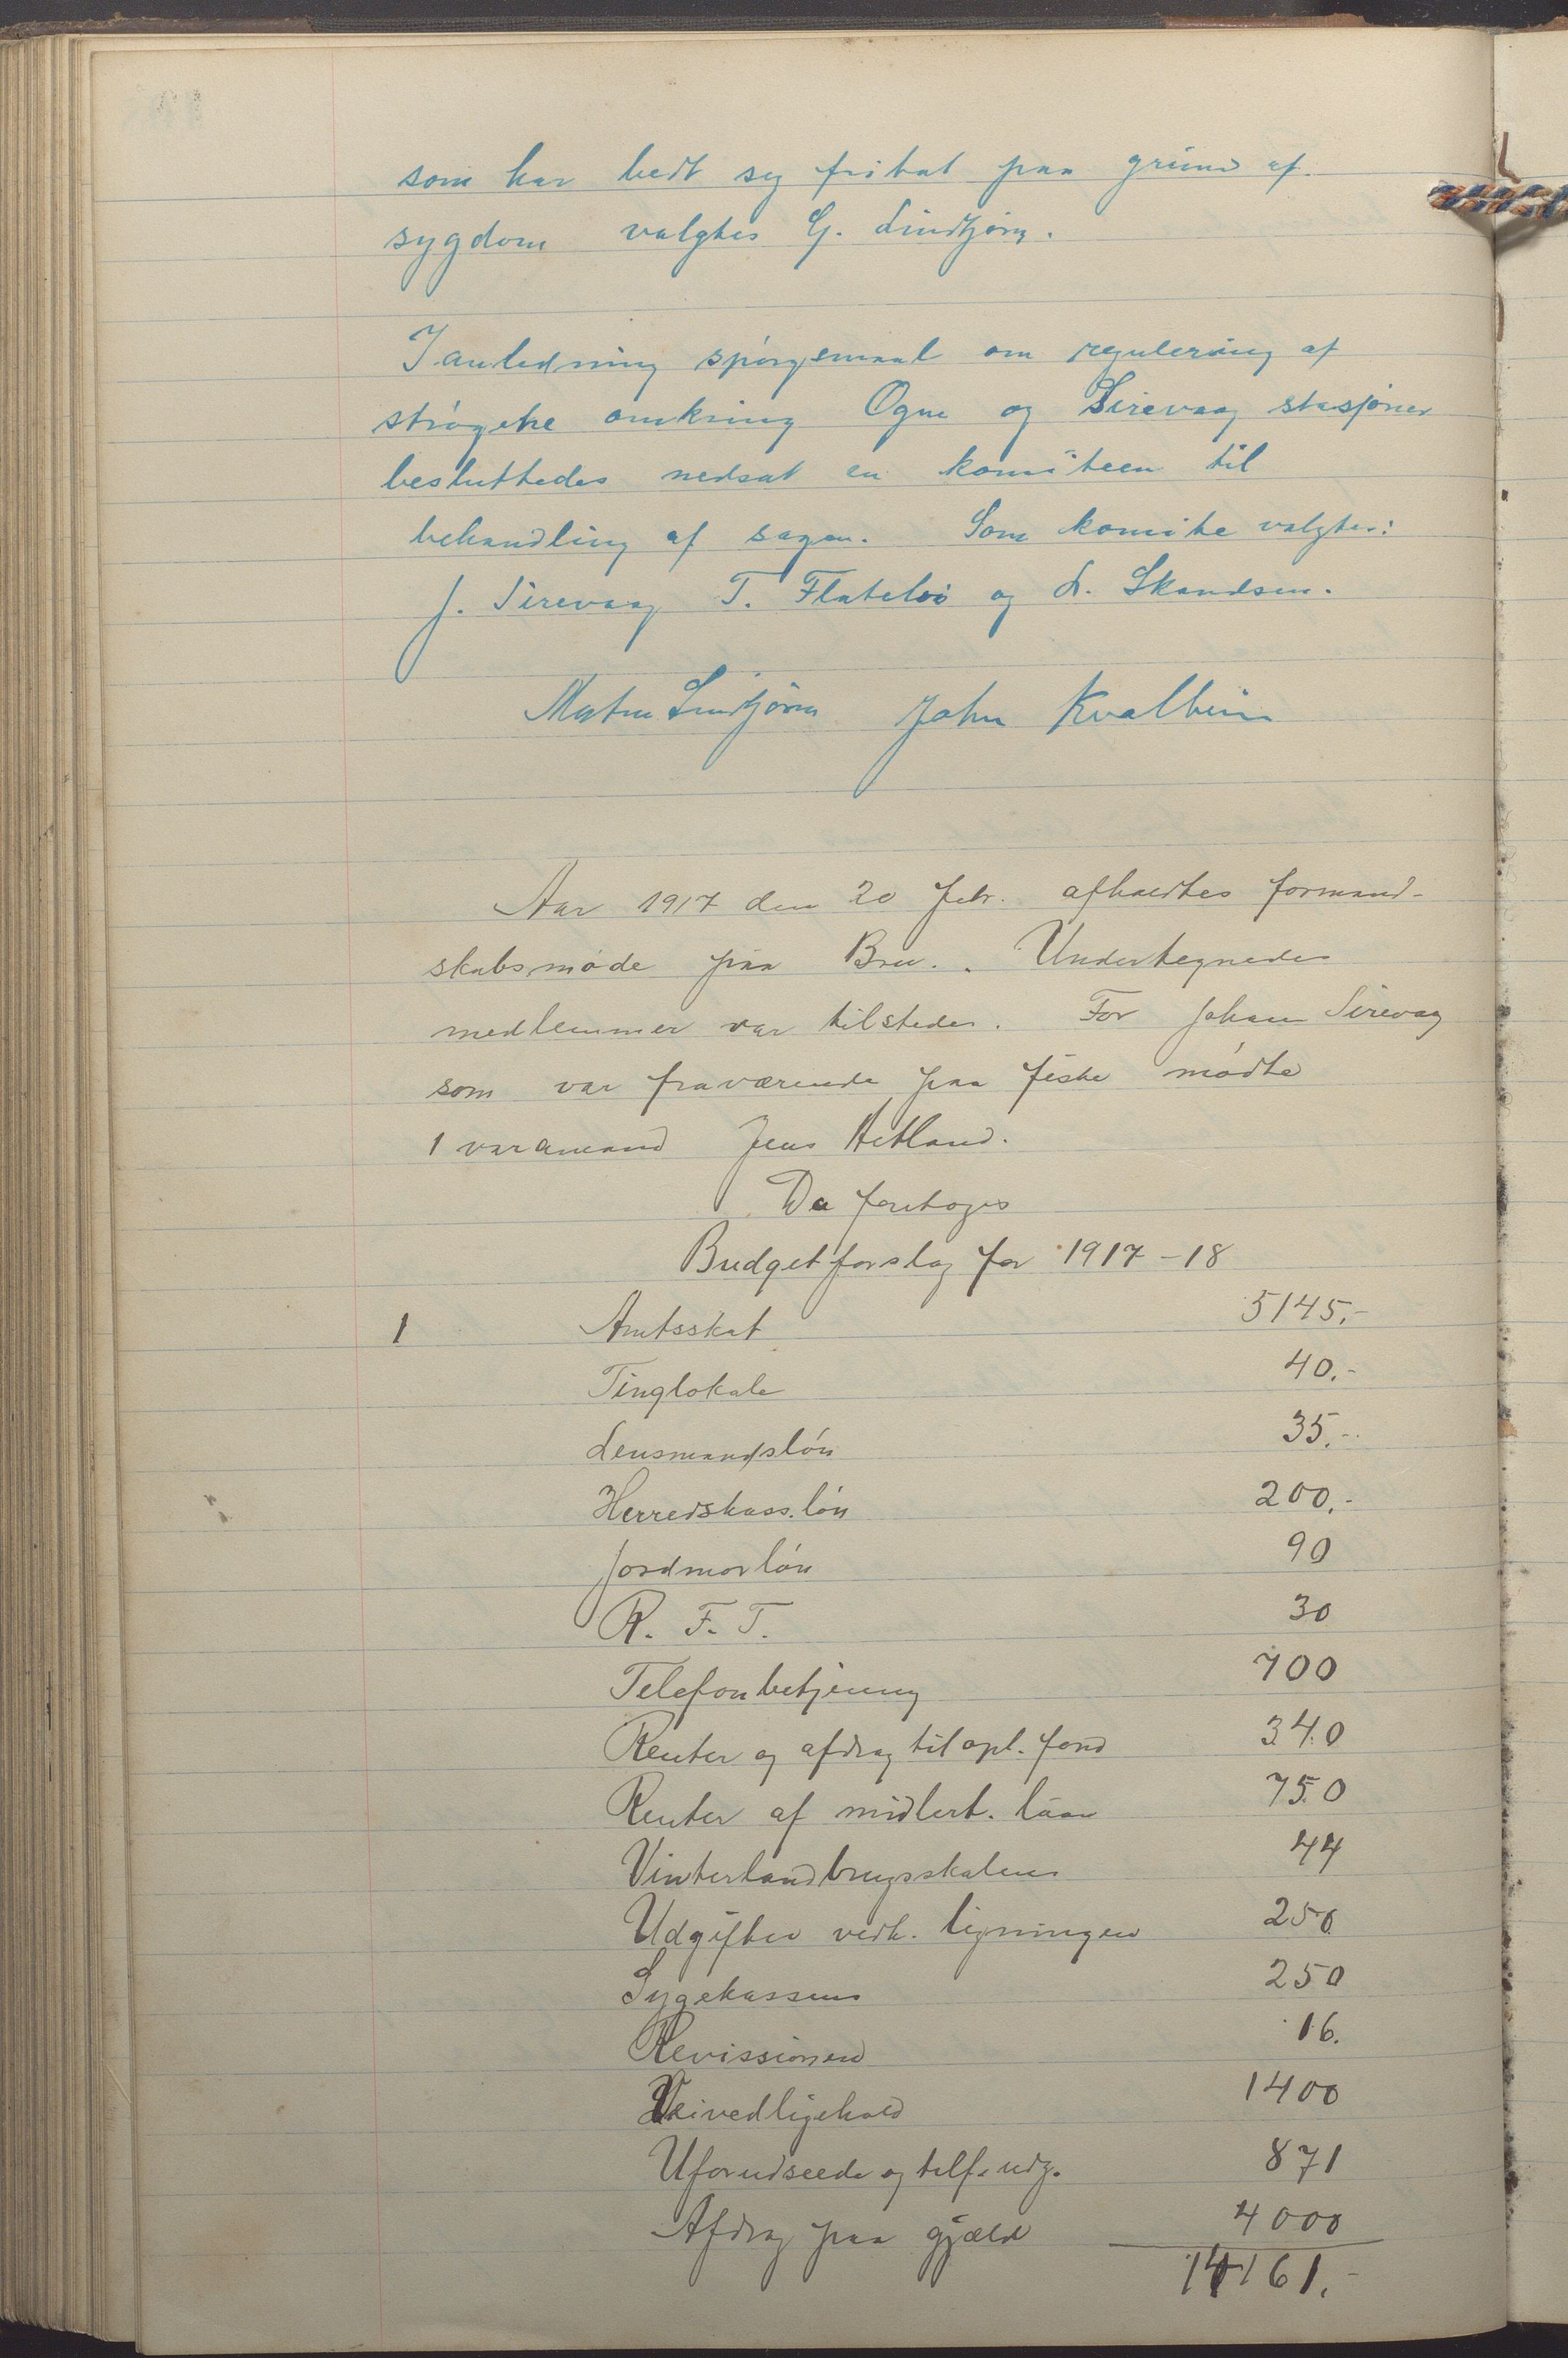 som har bedt seg fritat paa grund af
sygdom valgtes G. Lindtjørn.
I anledning spørgsmaal om regulering af
strøgene omkring Ogne og Sirevaag stasjoner
besluttedes nedsat en komiteen til
behandling af sagen. Som komite valgtes:
J. Sirevaag T. Flateløi og L. Skandsen.
Martin Lindtjørn John Kvalbein
Aar 1917 den 20 Febr. afholdtes formand-
skabsmøde paa Bru. Undertegnede
medlemmer var tilstede. For Johan Sirevaag
som var fraværende paa fiske mødte
1 varamand Jens Hetland.
Da foretoges
Budgetforslag for 1917-18
1 Amtsskat 5145.-
Tinglokale 40.-
Lensmandsløn 35.-
Herredskass. løn 200.-
Jordmorløn 90
R. F. T. 30
Telefonbetjening 700
Renter og afdrag til opl. fond 340
Renter af midlert. laan 750
Vinterlandbrugsskolen 44
Udgifter vedk. ligningen 250
Sygekassen 250
Revissionen 16.
Veivedligehold 1400
Uforudseede og tilf. udg. 871
Afdrag paa gjæld 4000
14161.-